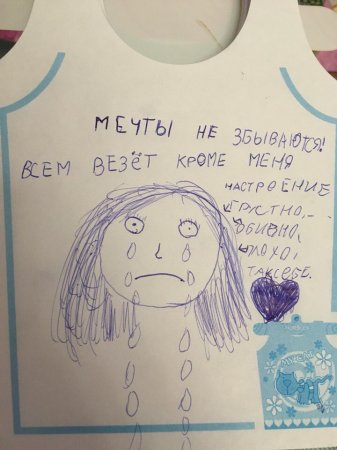 МЕЧТЫ НЕ ЗБЫВАЮТСЯ!
ВСЕМ ВЕЗЁТ КРОМЕ МЕНЯ
НАСТРОЕНИЕ
ГРУСТНО,
ОБИДНО,
ПЛОХО,
ТАКСЕБЕ.